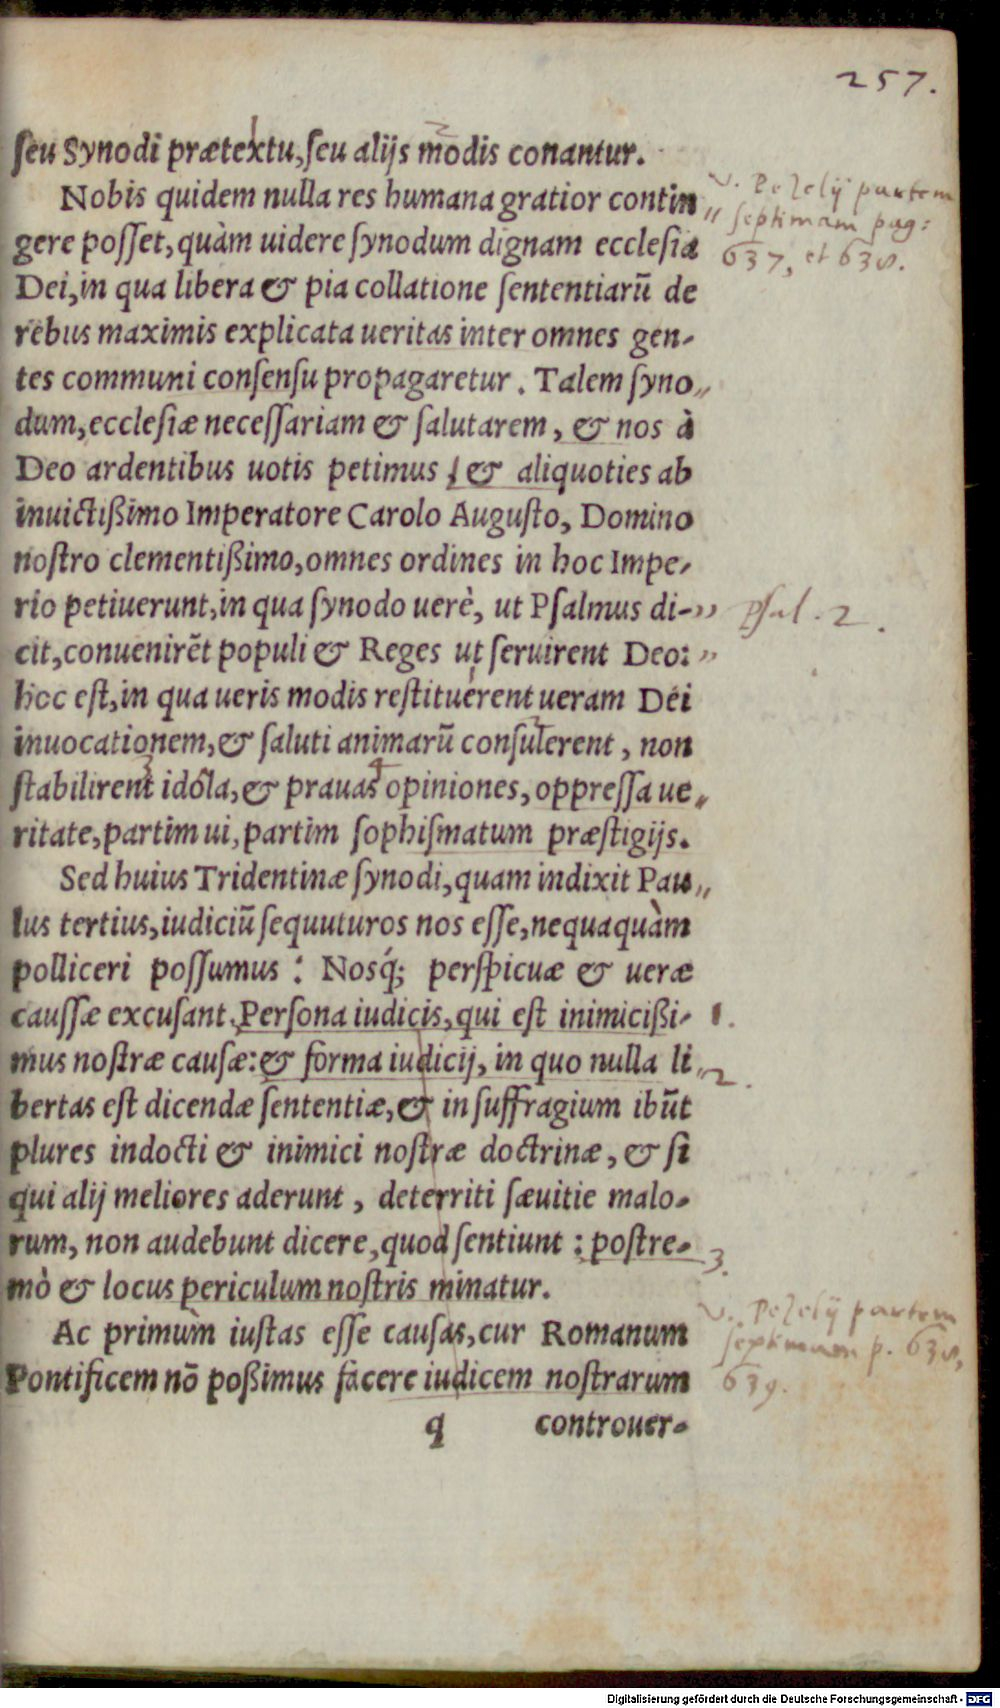 257.
seu Synodi prætextu, seu alijs modis conantur.
Nobis quidem nulla res humana gratior contin
gere posset, quàm uidere synodum dignam ecclesia
Dei, in qua libera & pia collatione sententiarũ de
rebus maximis explicata ueritas inter omnes gen-
tes communi consensu propagaretur. Talem syno
dum, ecclesiæ necessariam & salutarem, & nos à
Deo ardentibus uotis petimus, & aliquoties ab
inuictißimo Imperatore Carolo Augusto, Domino
nostro clementißimo, omnes ordines in hoc Impe-
rio petiuerunt, in qua synodo uerè, ut Psalmus di-
cit, conuenirẽt populi & Reges ut seruirent Deo:
hoc est, in qua ueris modis restituerent ueram Dei
inuocationem, & saluti animarũ consulerent, non
stabilirent idola, & prauas opiniones, oppressa ue
ritate, partim ui, partim sophismatum præstigijs.
Sed huius Tridentinæ synodi, quam indixit Pau
lus tertius, iudiciũ sequuturos nos esse, nequaquàm
polliceri possumus: Nosq́; perspicuæ & ueræ
caussæ excusant. Persona iudicis, qui est inimicißi-
mus nostræ causæ: & forma iudicij, in quo nulla li
bertas est dicendæ sententiæ, & in suffragium ibũt
plures indocti & inimici nostræ doctrinæ, & si
qui alij meliores aderunt, deterriti sæuitie malo-
rum, non audebunt dicere, quod sentiunt: postre-
mò & locus periculum nostris minatur.
Ac primùm iustas esse causas, cur Romanum
Pontificem nõ poßimus facere iudicem nostrarum
q controuer-
v. Pezelij partem
septimam pag:
637, et 638.
Psal. 2.
1.
2.
3.
v. Pezelij partem
septimam p. 638,
639.
Digitalisierung gefördert durch die Deutsche Forschungsgemeinschaft - DFG